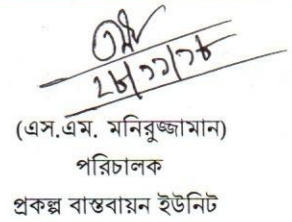 ২৮/১১/১৮
(এস.এম. মনিরুজ্জামান)
পরিচালক
প্রকল্প বাস্তবায়ন ইউনিট